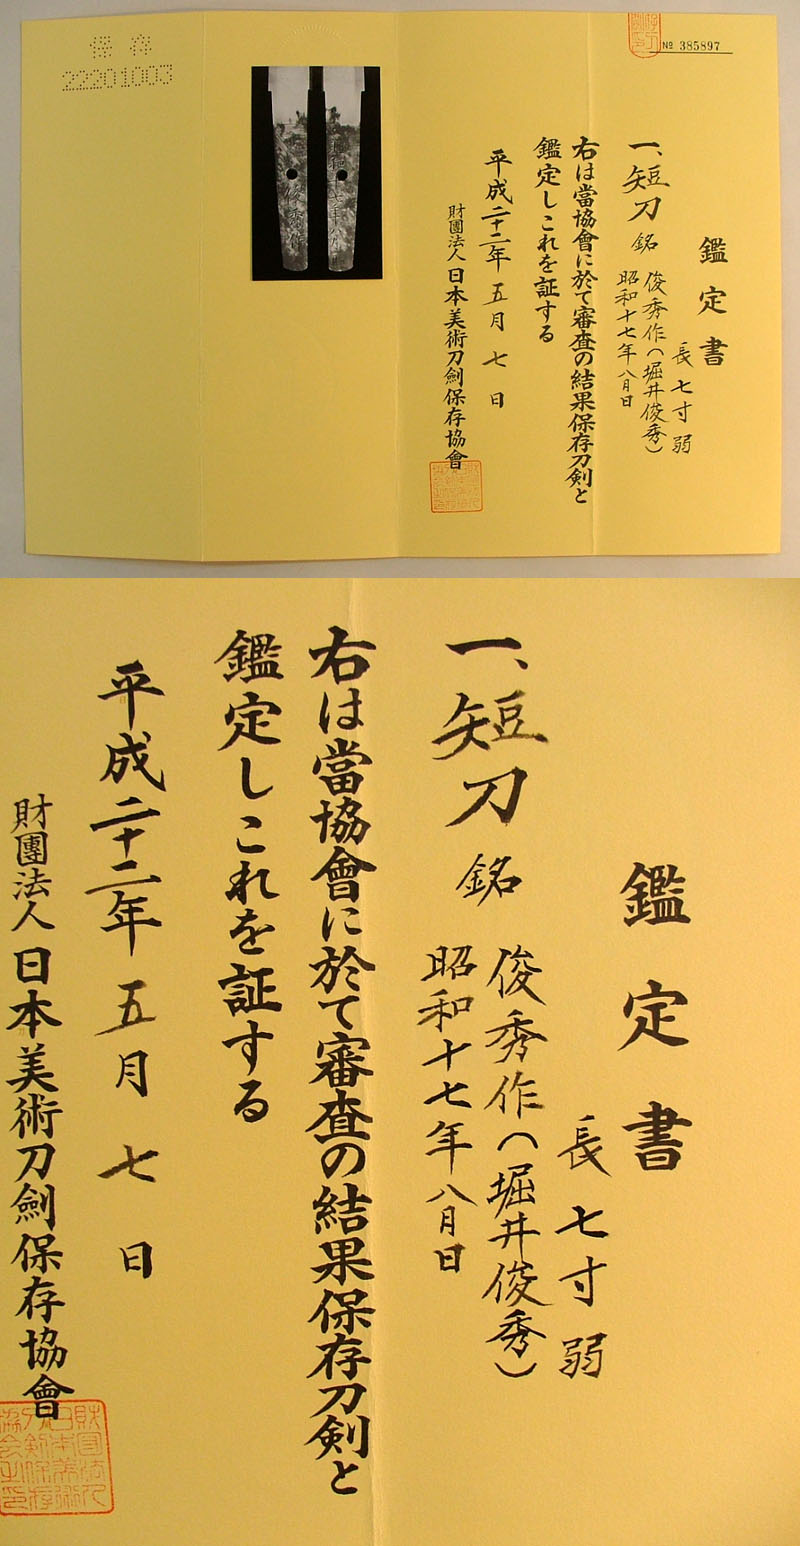 № 385897
鑑定書
長 七寸弱
一、短刀 銘 俊秀作(堀井俊秀)
昭和十七年八月日
右は當協會に於て審査の結果保存刀剣と
鑑定しこれを証する
平成二十二年 五月 七 日
財團法人 日本美術刀劍保存協會
保存
22201003
俊秀作
鑑定書
長 七寸弱
一、短刀 銘 俊秀作(堀井俊秀)
昭和十七年八月日
右は當協會に於て審査の結果保存刀剣と
鑑定しこれを証する
平成二十二年 五月 七 日
財團法人 日本美術刀劍保存協會